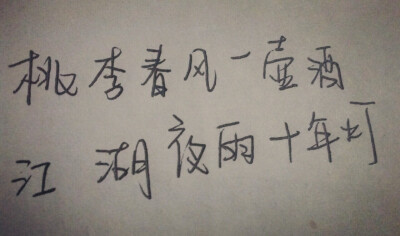 桃李春风一壶酒
江湖夜雨十年灯